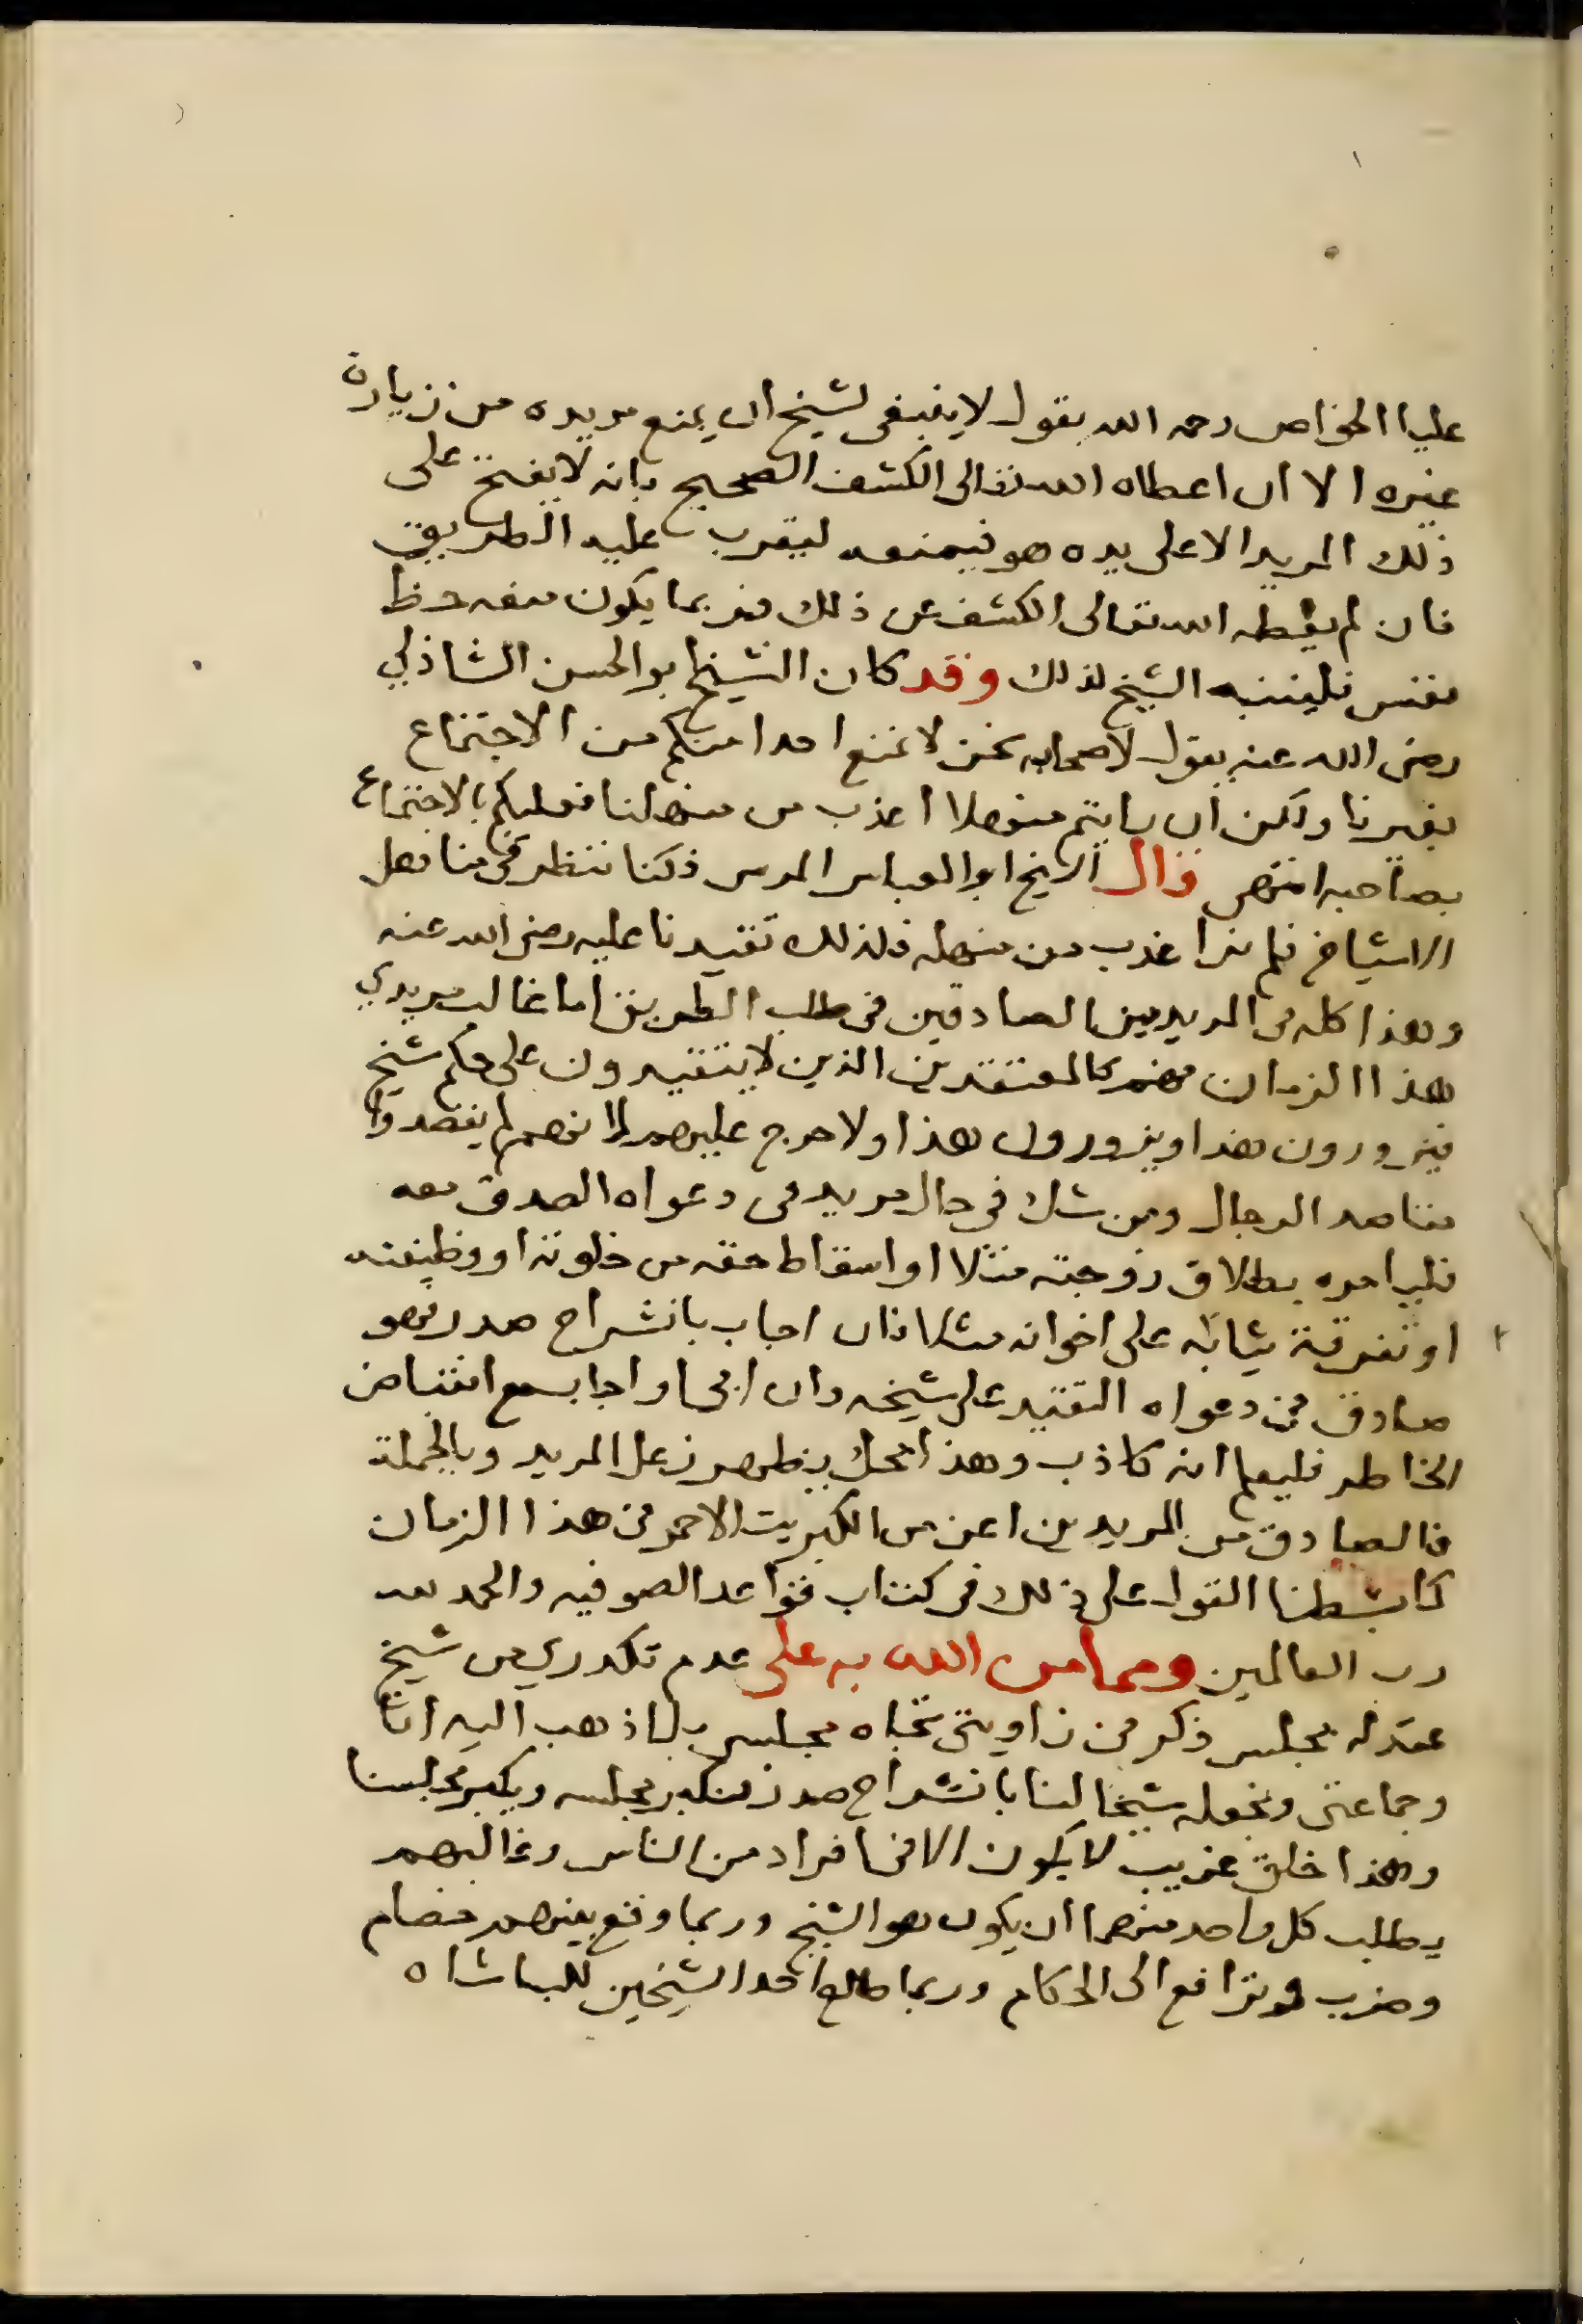 عليا الخواص رحمه الله يقول لا ينبغي لشيخ ان يمنع مريده من زيارة
غيره الا ان اعطاه الله تعالى الكشف الصحيح بانه لا يفتح على
ذلك المريد الا على يده هو فيمنعه ليقرب عليه الطريق
فان لم يعطه الله تعالى الكشف عن ذلك فربما يكون منعه حظ
نفس فليتنبه الشيخ لذلك وقد كان الشيخ ابو الحسن الشاذلي
رضي الله عنه يقول لاصحابه نحن لا نمنع احدا منكم من الاجتماع
بغيرنا ولكن ان رايتم منهلا اعذب من منهلنا فعليكم بالاجتماع
بصاحبه انتهى قال الشيخ ابو العباس المرسي فكنا ننظر في مناهل
الاشياخ فلم نر اعذب من منهله فلذلك تقيدنا عليه رضي الله عنه
وهذا كله في المريدين الصادقين في طلب الطريق اما غالب مريدي
هذا الزمان فهم كالمعتقدين الذين لا يتقيدون على حكم شيخ
فيزورون هذا ويزورون هذا ولا حرج عليهم لانهم لم يقصدوا
مقاصد الرجال ومن شك في حال مريد في دعواه الصدق معه
فليامره بطلاق زوجته مثلا او اسقاط حقه من خلوته او وظيفته
او تفرقة ثيابه على اخوانه مثلا فان اجاب بانشراح صدر فهو
صادق في دعواه التقيد على شيخه وان ابى او اجاب مع انقباض
الخاطر فليعلم انه كاذب وهذا محك يظهر زغل المريد وبالجملة
فالصادق من المريدين اعز من الكبريت الاحمر في هذا الزمان
كما بسطنا القول على ذلك في كتاب قواعد الصوفيه والحمد لله
رب العالمين ومما من الله به على عدم تكدري من شيخ
عقد له مجلس ذكر في زاويتي تجاه مجلسي بل اذهب اليه انا
وجماعتي ونجعله شيخا لنا بانشراح صدر فنكبر مجلسه ويكبر مجلسنا
وهذا خلق غريب لا يكون الا في افراد من الناس وغالبهم
يطلب كل واحد منهما ان يكون هو الشيخ وربما وقع بينهم خصام
وضرب وترافع الى الحكام وربما طلع احد الشيخين للباشاه